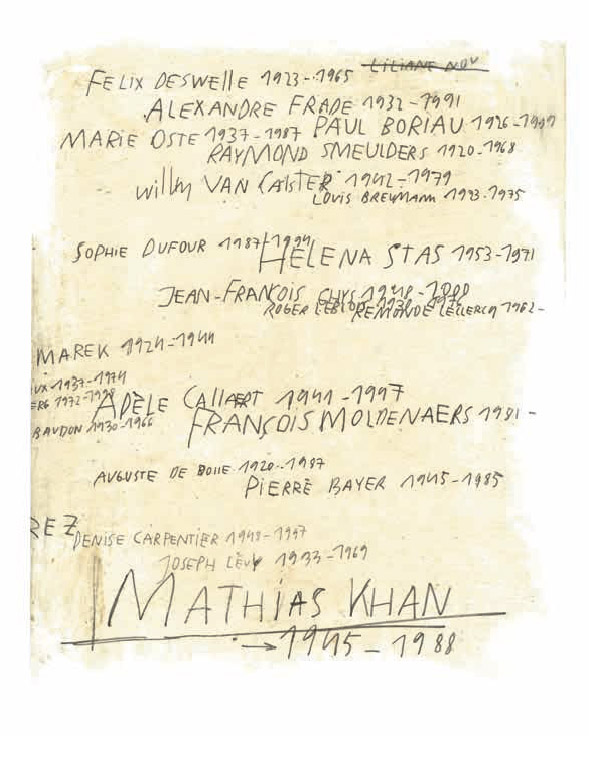 LILIANE NOV
FELIX DESWELLE 1923-1965
ALEXANDRE FRADE 1932-1991
MARIE OSTE 1937-1987 PAUL BORIAU 1926-1949
RAYMOND SMEULDERS 1920-1968
Willy VAN CALSTER 1942-1979
LOUIS BREYMANN 1923-1975
SOPHIE DUFOUR 1987/1994 HELENA STAS 1953-1971
JEAN-FRANÇOIS GHYS 1948-
ROGER REMONDE LECLERCQ 1962-
MAREK 1924-1944
UX 1937-1974
ERG 1972-
ADÈLE CALLAERT 1941-1997
BAUDON 1930-1966 FRANÇOIS MOLDENAERS 1981-
AUGUSTE DE BOLLE 1920-1987
PIERRE BAYER 1945-1985
REZ
DENISE CARPENTIER 1948-1997
JOSEPH LÉVY 1933-1969
MATHIAS KHAN
→1945-1988